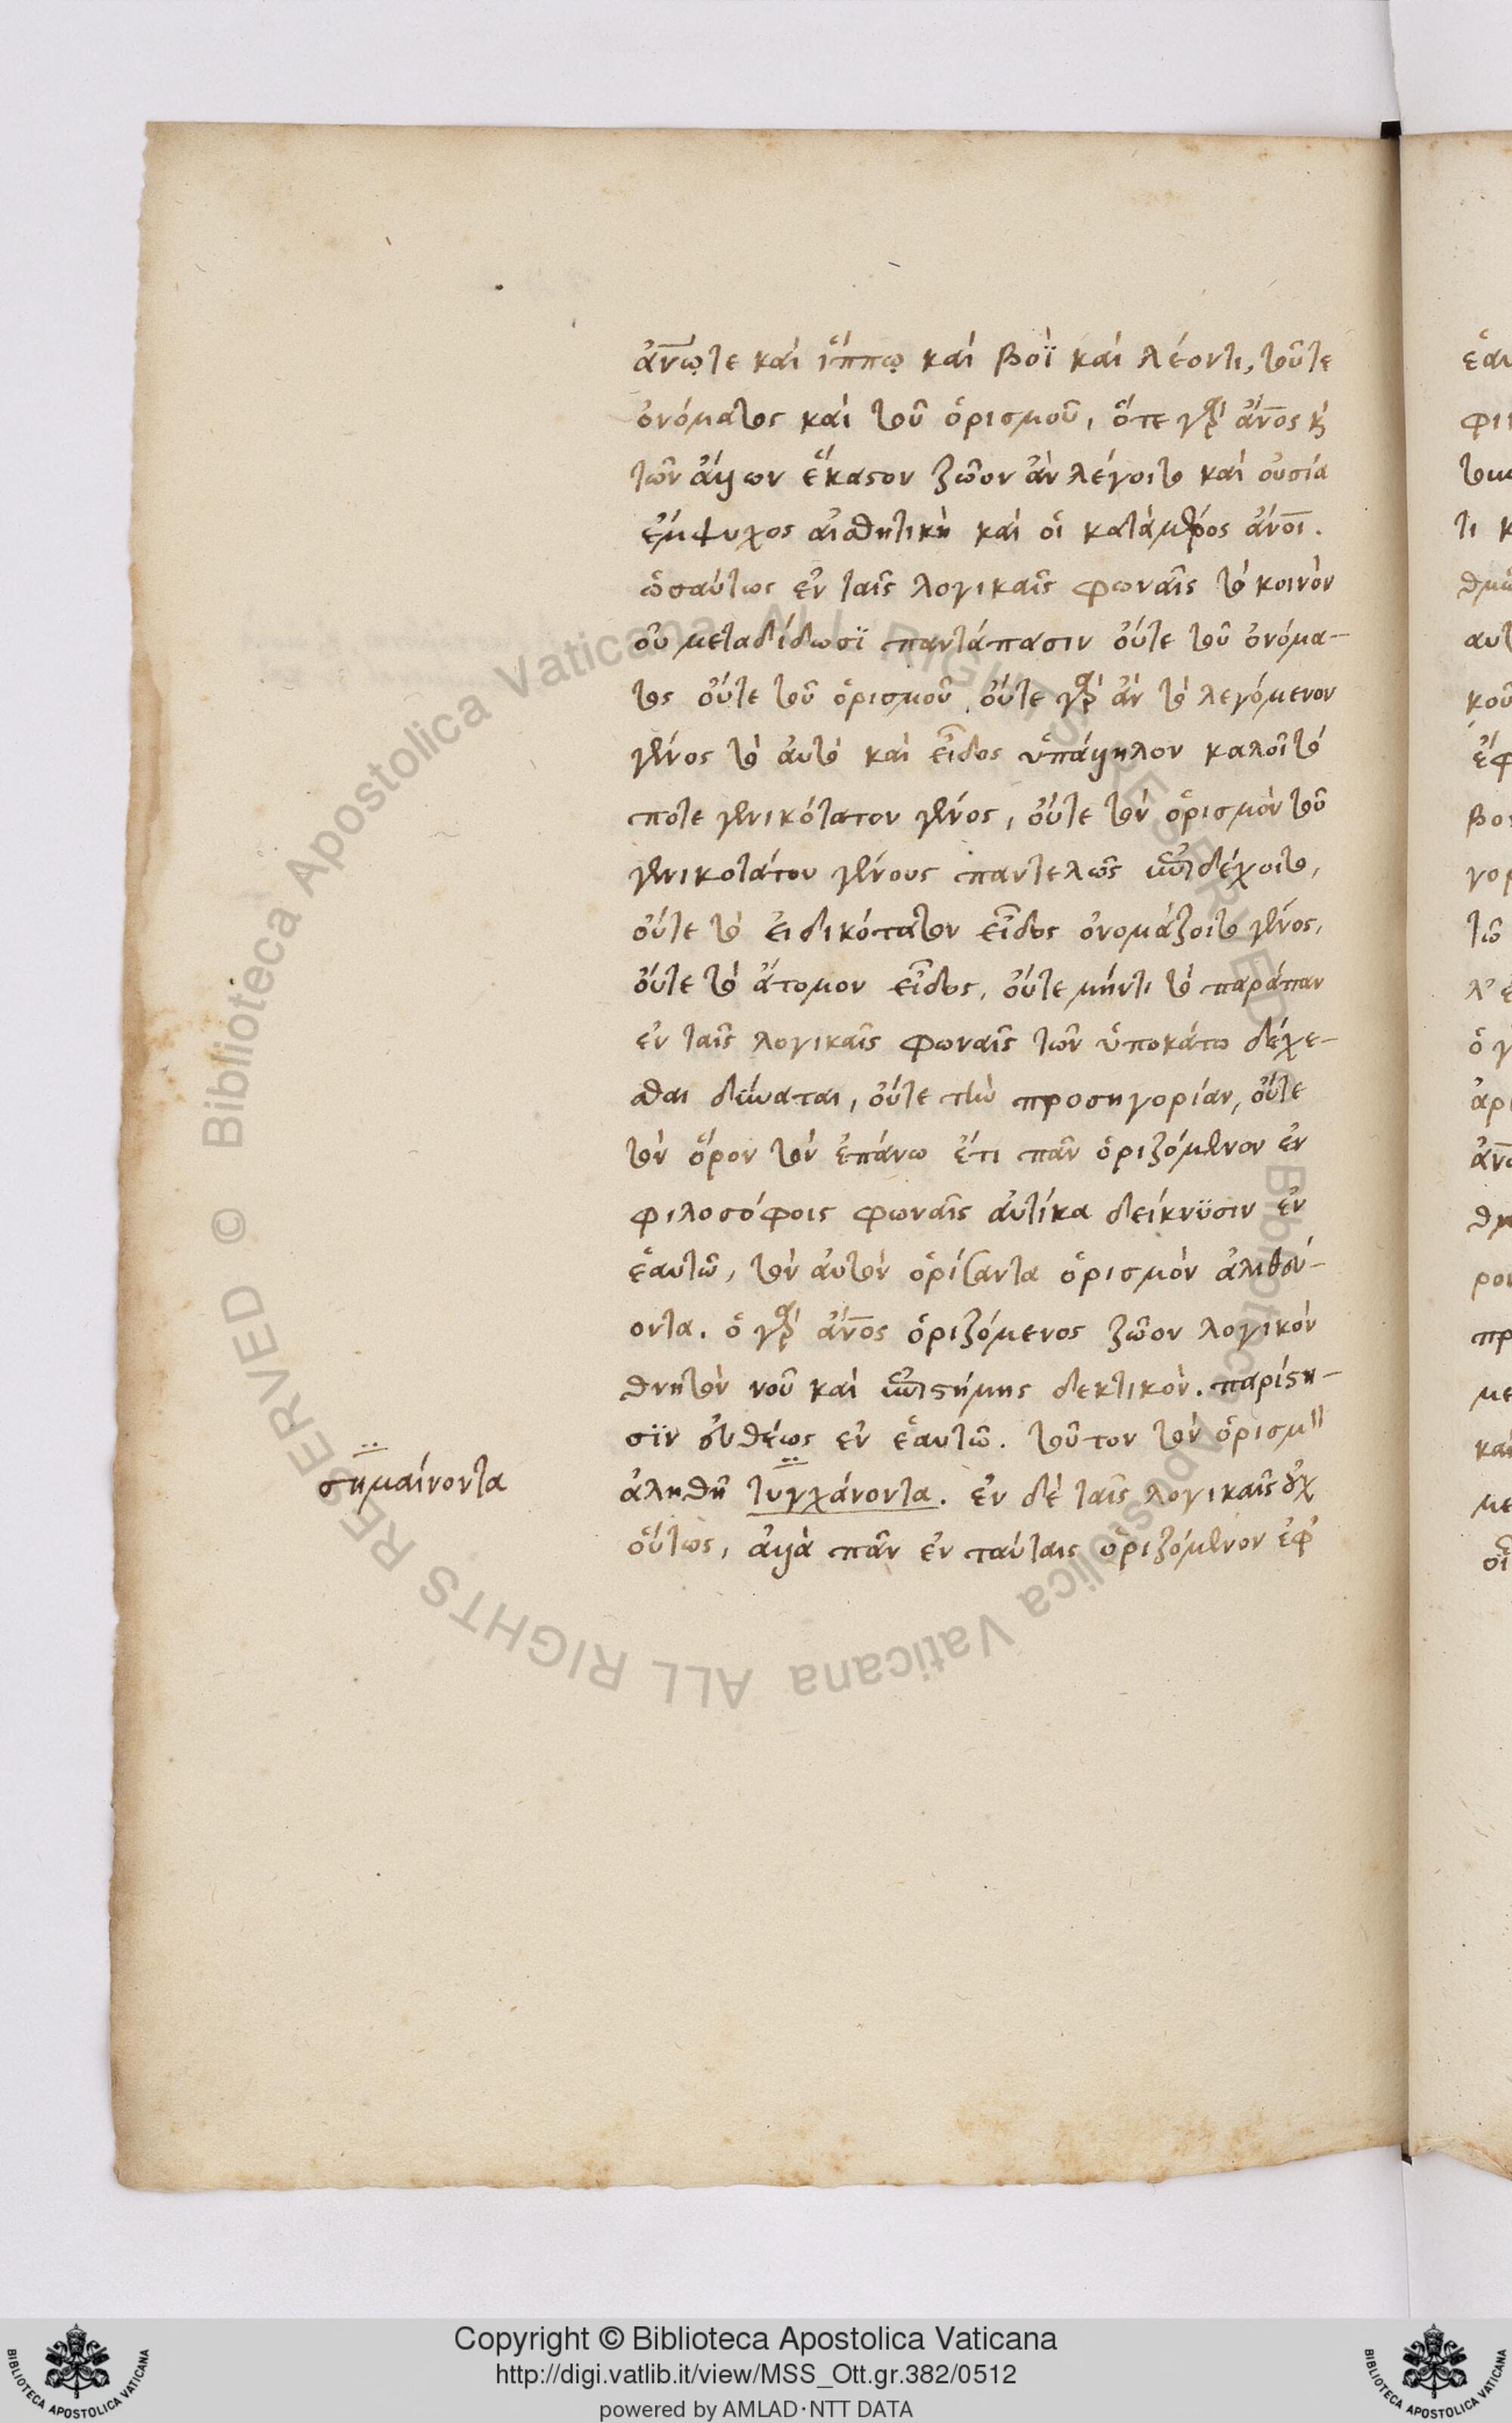 ἀν̅ω̣τε καὶ ἵππῳ καὶ βοῒ καὶ λέοντι, τοῦτε
ὀνόματος καὶ τοῦ ὁρισμοῦ, ὅτε γὰρ ἄν̅ος κ̀
τῶν ἄλλων ἕκαστον ζῶον ἂν λέγοιτο καὶ οὐσία
ἐμψυχος αἰσθητικὴ καὶ οἱ καταμέρος ἄν̅οι.
ὡσαύτως ἐν ταῖς λογικαῖς φωναῖς τὸ κοινὸν
οὐ μεταδίδωσϊ παντάπασιν οὔτε τοῦ ὀνόμα-
τος οὔτε τοῦ ὁρισμοῦ, οὔτε γὰρ ἂν τὸ λεγόμενον
γένος τὸ αὐτὸ καὶ εἶδος ὑπάλληλον καλοῖτό
ποτε γενικότατον γένος, οὔτε τὸν ὁρισμὸν τοῦ
γενικοτάτου γένους παντελῶς ἐπιδέχοιτο,
οὔτε τὸ εἰδικότατον εἶδος ὀνομάζοιτο γένος,
οὔτε τὸ ἄτομον εἶδος, οὔτε μήντι τὸ παράπαν
ἐν ταῖς λογικαῖς φωναῖς τῶν ὑποκάτω δέχε-
σθαι δύναται, οὔτε τὴν προσηγορίαν, οὔτε
τὸν ὅρον τὸν ἐπάνω ἔτι πᾶν ὁριζόμενον ἐν
φιλοσόφοις φωναῖς αὐτίκα δείκνϋσιν ἐν
ἑαυτῶ, τὸν αὐτὸν ὁρίσαντα ὁρισμὸν ἀληθεύ-
οντα. ὁ γὰρ ἄν̅ος ὁριζόμενος ζῶον λογικὸν
θνητὸν νοῦ καὶ ἐπιστήμης δεκτικὸν. παρίστη-
σϊν εὐθέως ἐν ἑαυτῶ. τοῦτον τὸν ὁρισμὸν
σημαίνοντα
ἀληθῆ τυγχάνοντα. ἐν δὲ ταῖς λογικαῖς οὐχ
οὕτως, ἀλλὰ πᾶν ἐν ταύταις ὁριζόμενον ἐφ'
Copyright © Biblioteca Apostolica Vaticana
http://digi.vatlib.it/view/MSS_Ott.gr.382/0512
powered by AMLAD·NTT DATA